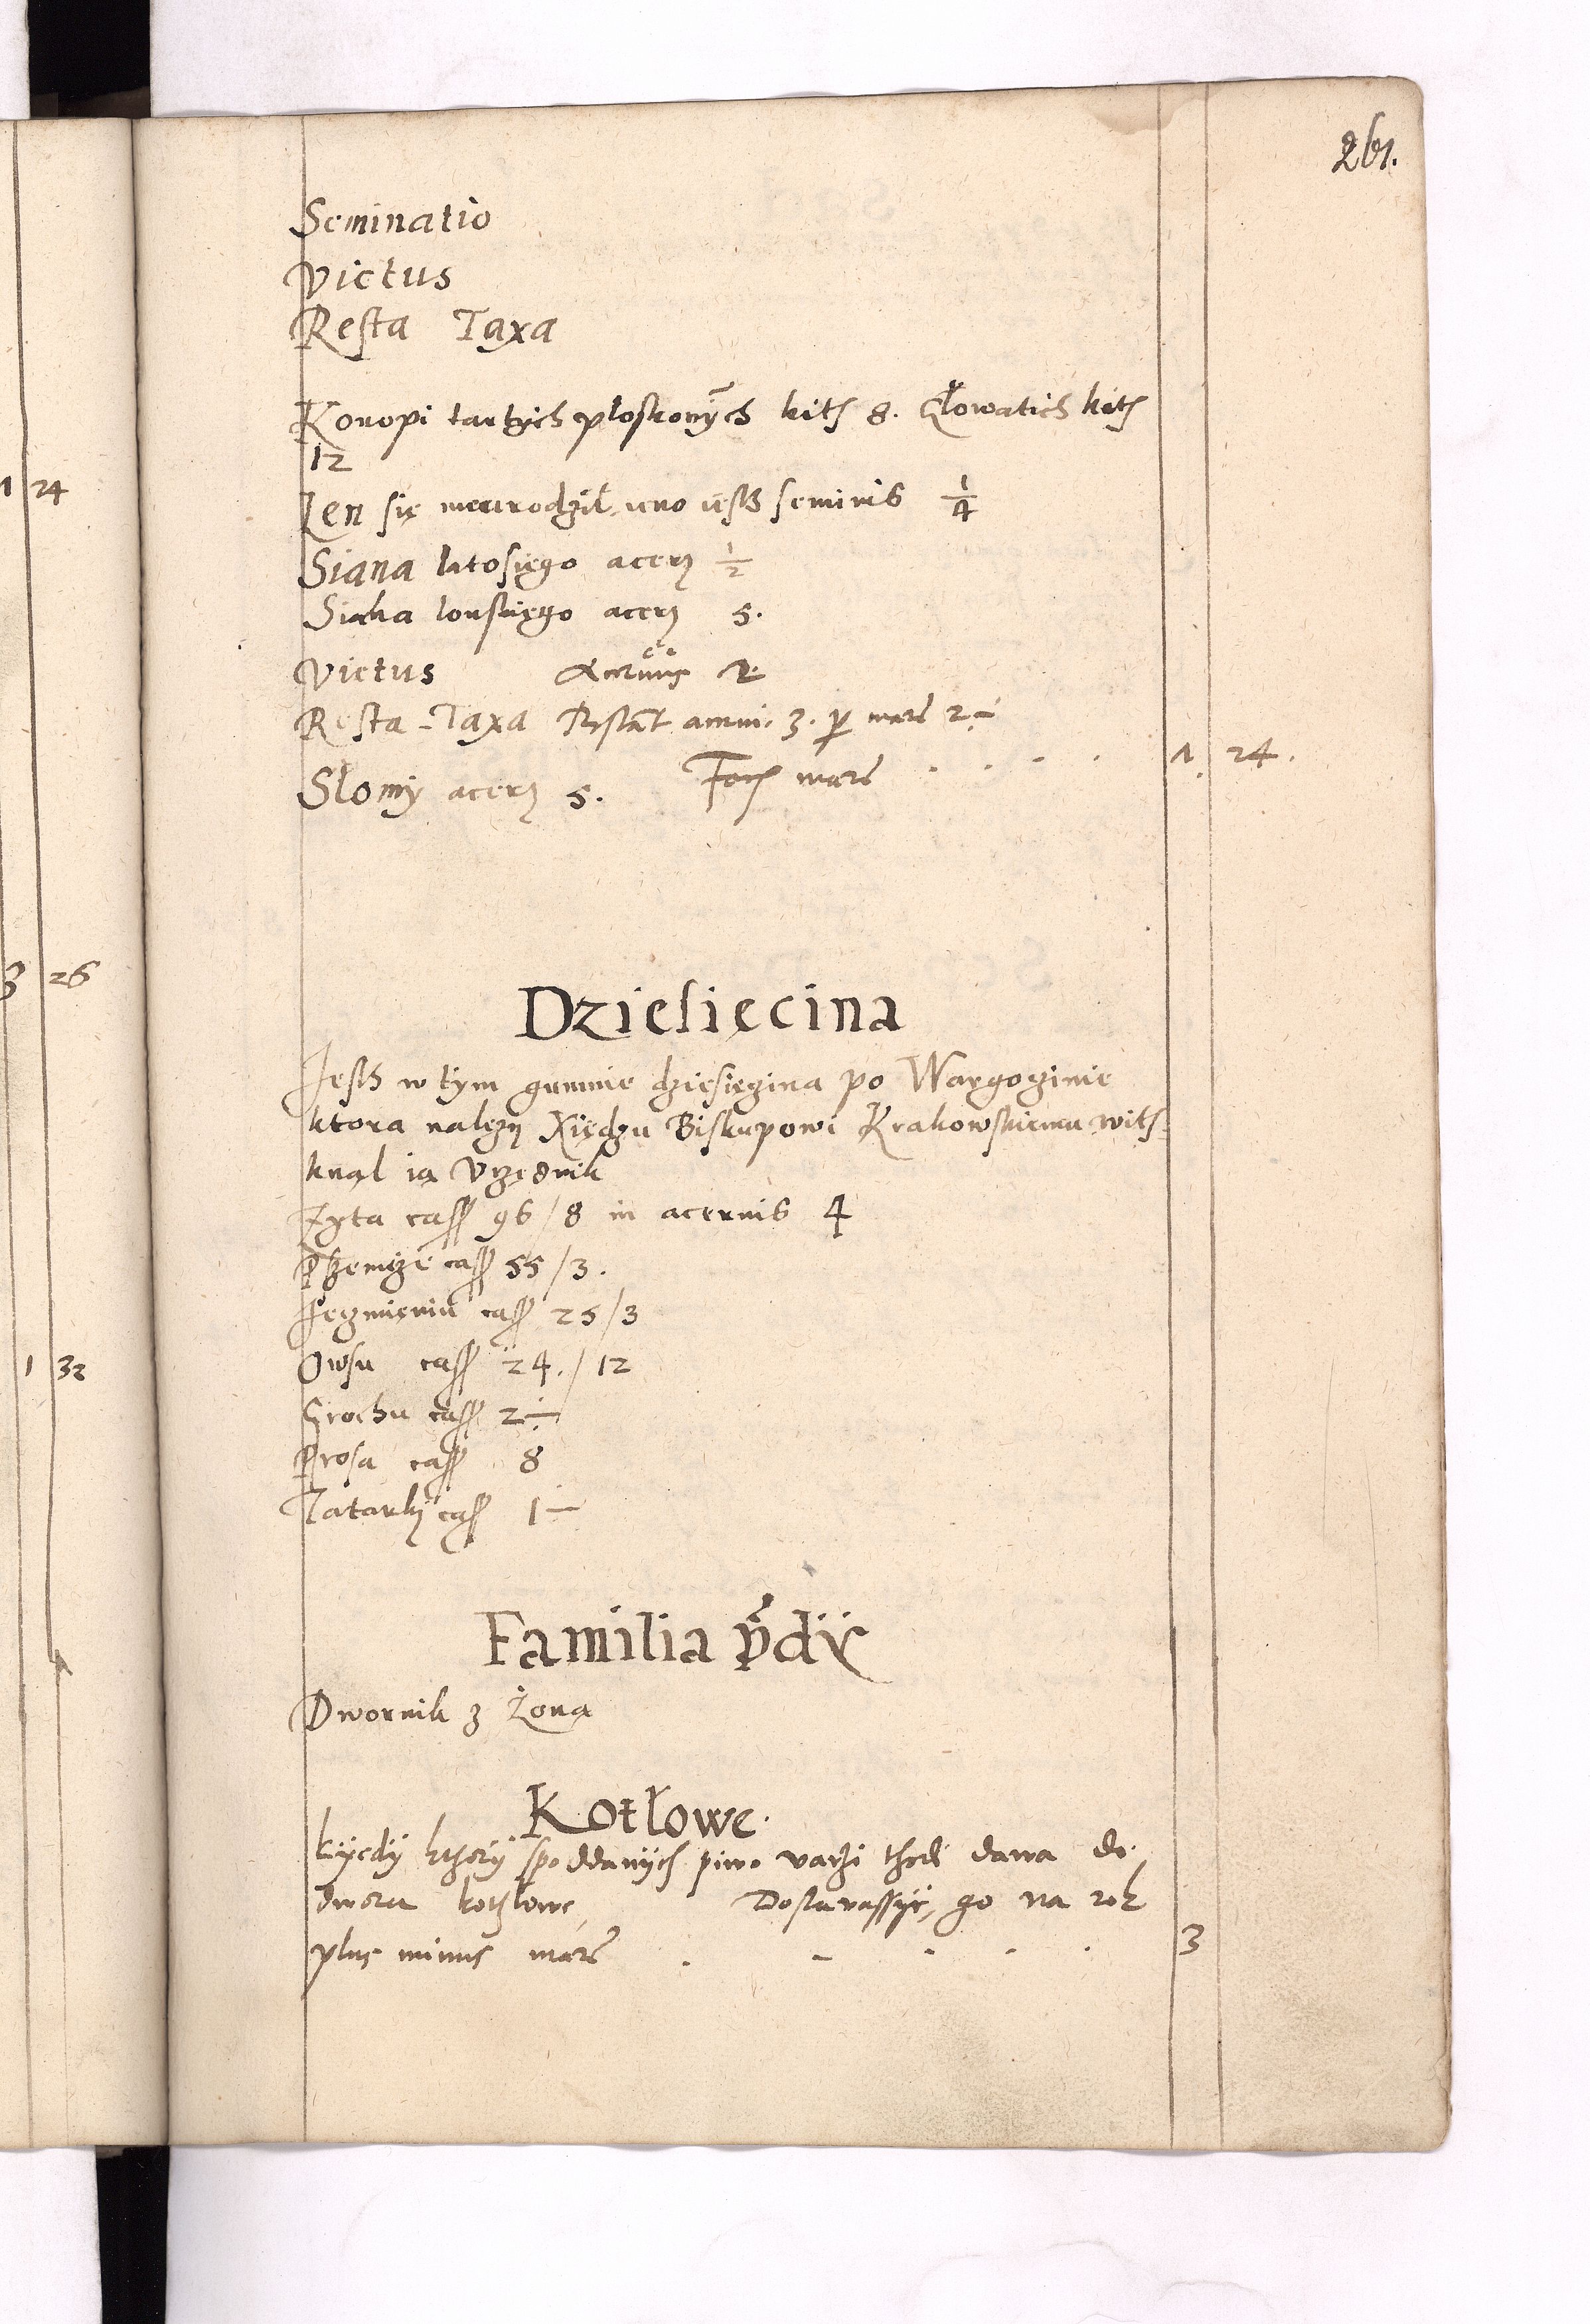 261.
Seminatio
Victus
Resta Taxa
Konopi tartych płoskonych kits 8. Głowatich kits
12
Len się nieurodził, jeno iesth seminis 1/4
Siana latosiego acerŋ 1/2
Siana lonskiego acerŋ 5.
Victus Acervus 2
Resta Taxa Restant acervi. 3. per marc 2 ÷
Facit marc . . . . 1. 24.
Słomy acerŋ 5.
Dziesięcina
Jesth w tym gumnie dziesięzina po Wargozinie
ktora nalezy Xiędzu Biskupowi Krakowskiemu wits-
knął ią Vrzędnik
Zyta cass 96/8 in acervis 4
Pszenicze cass 55/3.
Jęczmieniu cass 25/3
Owsu cass 24./12
Grochu cass 2 ÷
Prosa cass 8
Tatarky cass 1 ÷
Familia prdii
Dwornik z Żoną
Kotłowe.
kiedy ktory spoddanych piwo varzi thedi dawa do
dworu kothlowe, Dostavassye, go na rok
plus minus marc . - . . . 3
1 24
3 26
1 32